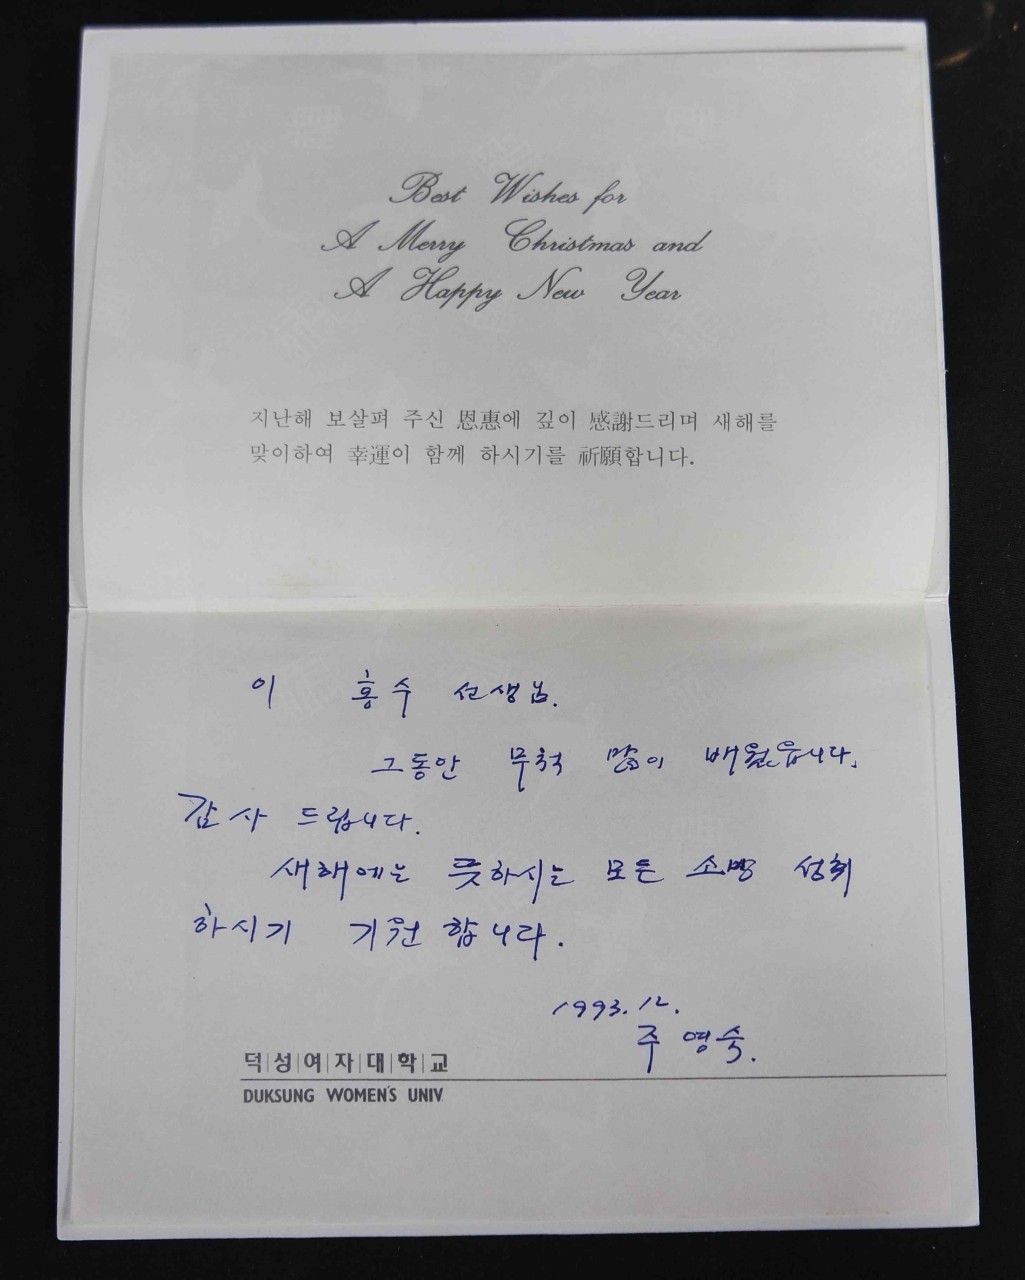 Best Wishes for
A Merry Christmas and
A Happy New Year
지난해 보살펴 주신 恩惠에 깊이 感謝드리며 새해를
맞이하여 幸運이 함께 하시기를 祈願합니다.
이 홍수 선생님.
그동안 무척 많이 배웠읍니다.
감사 드립니다.
새해에는 뜻하시는 모든 소망 성취
하시기 기원 합니다.
1993. 12.
주 영숙.
덕|성|여|자|대|학|교
DUKSUNG WOMEN'S UNIV.